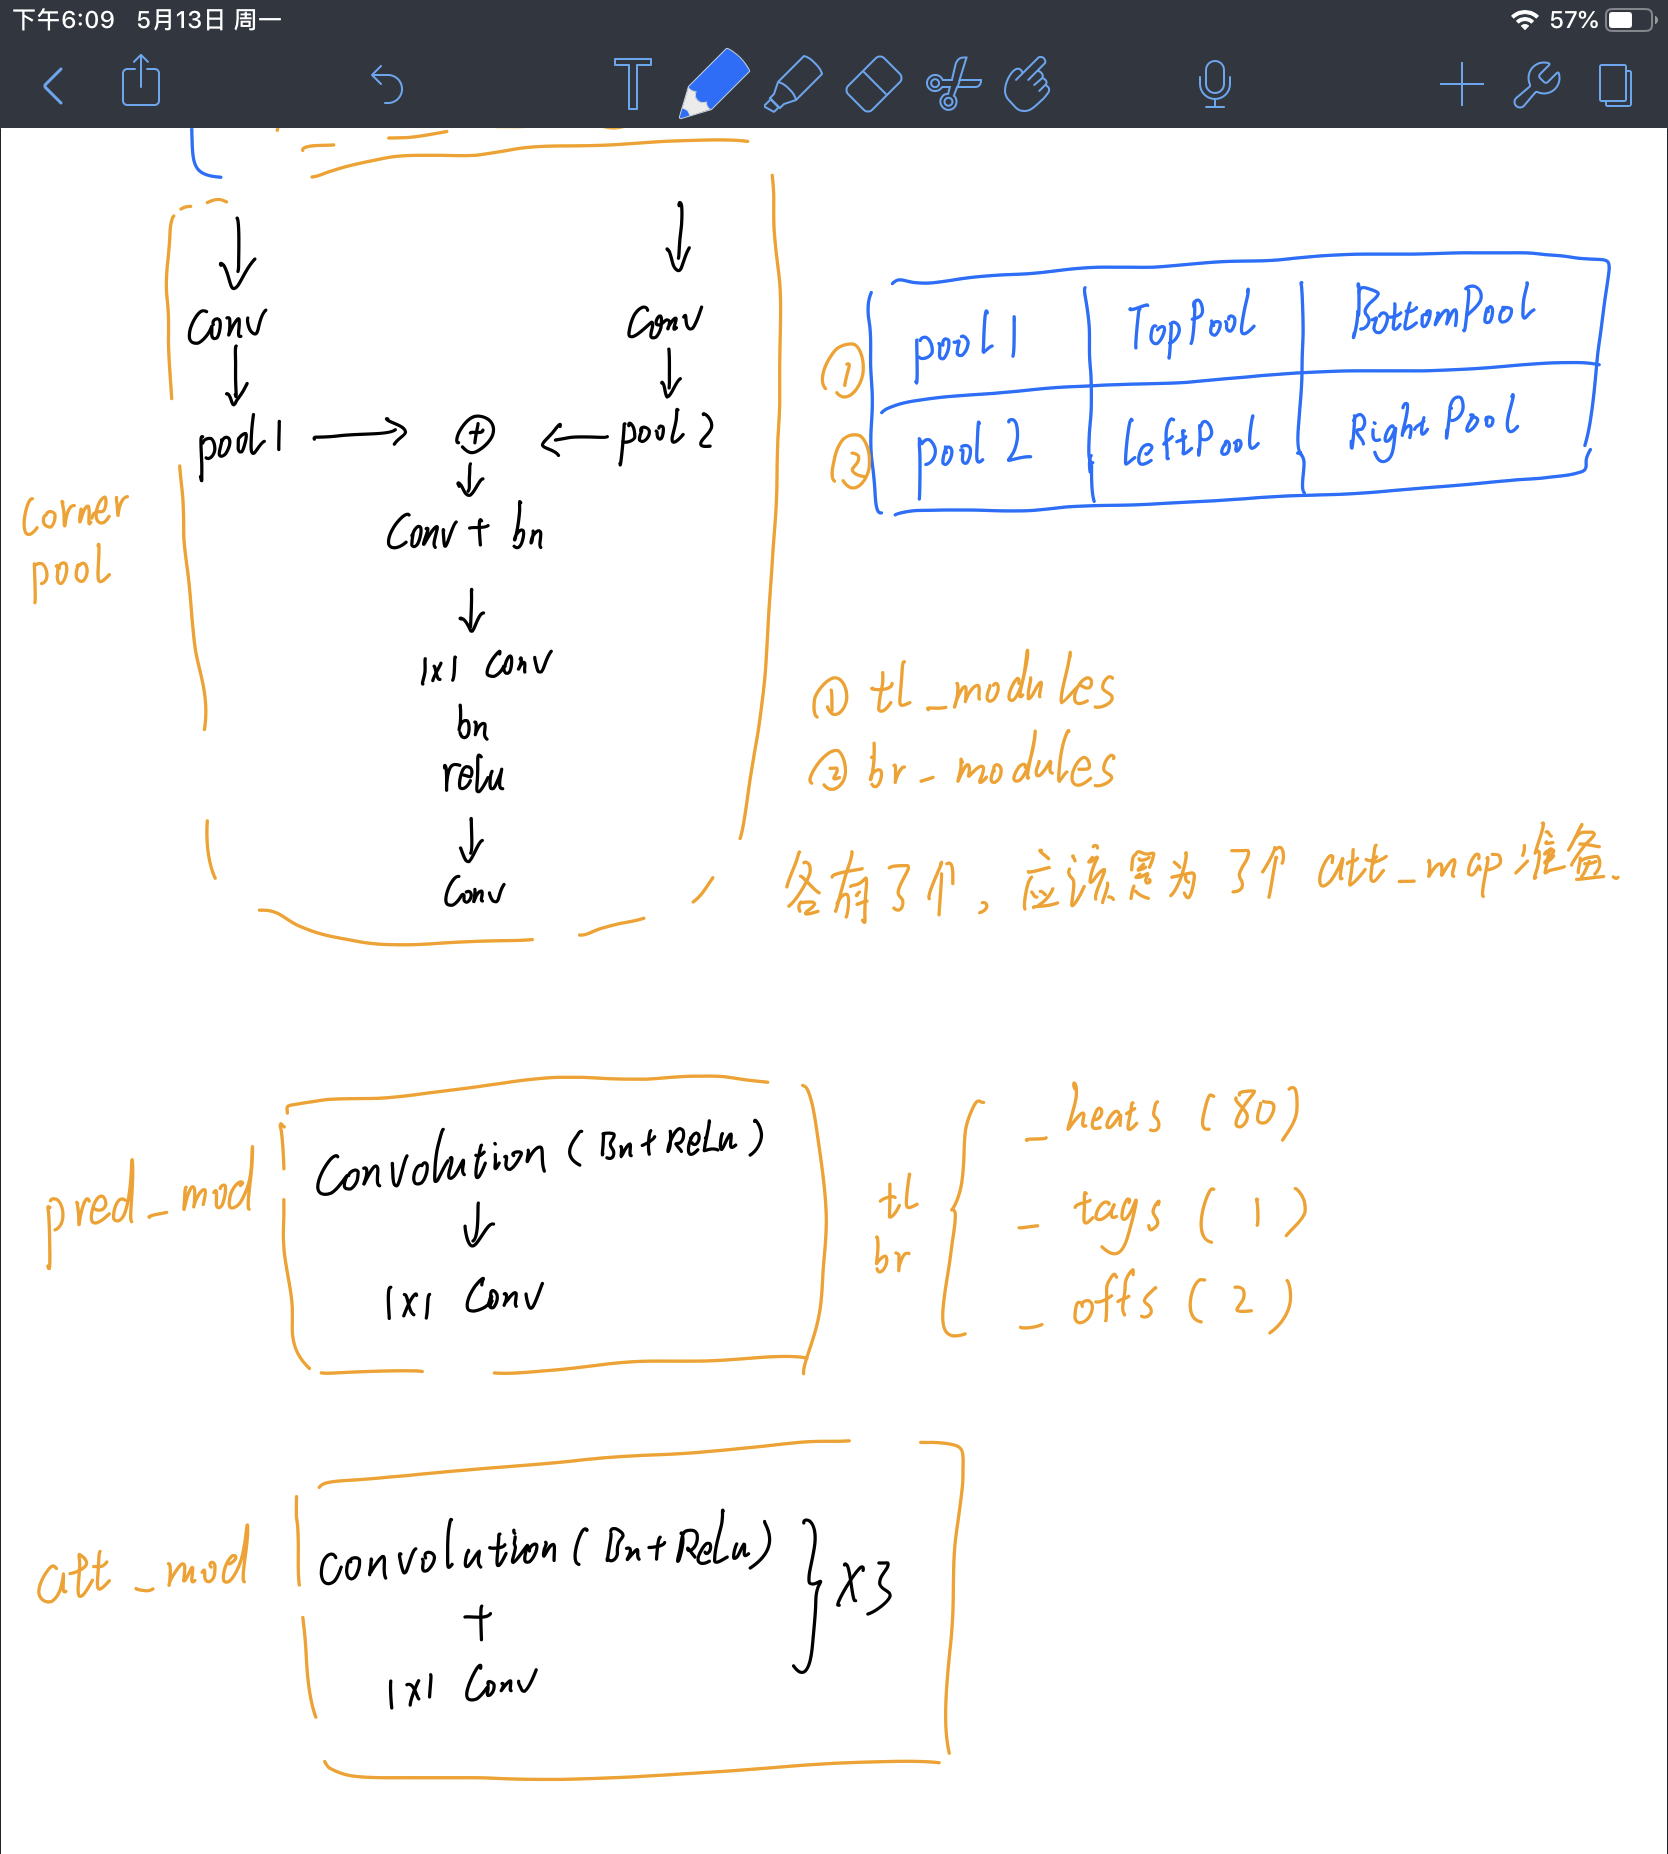 下午6:09 5月13日 周一 57%
Conv Conv
pool1 → ⊕ ← pool2
Conv + bn
1x1 Conv
bn
relu
Conv
Corner
pool
① pool1 TopPool BottomPool
② pool2 LeftPool RightPool
① tl_modules
② br_modules
各有3个, 应该是为3个 att_map准备.
pred_mod
Convolution (Bn+ReLu)
↓
1x1 Conv
tl
br
_heats (80)
_tags (1)
_offs (2)
att_mod
convolution (Bn+ReLu)
+
1x1 Conv
x3